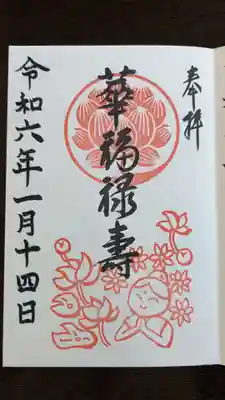 奉拝
華福禄寿
令和六年一月十四日